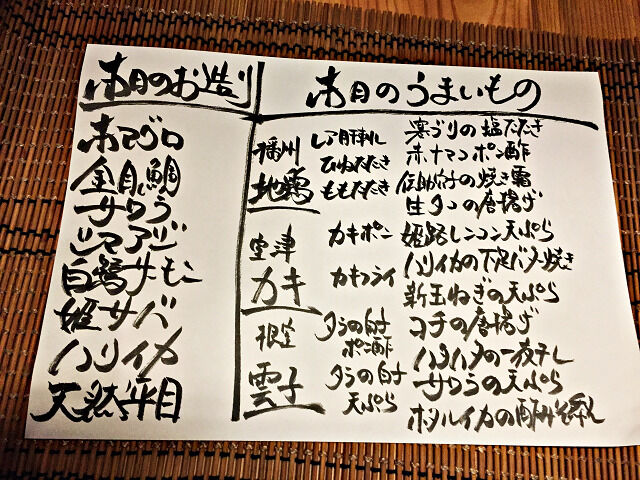 本日のお造り
本マグロ
金目鯛
サワラ
シマアジ
白鷺サーモン
姫サバ
ハリイカ
天然平目
本日のうまいもの
播州
地鶏
レア月津刺し
ひねたたき
ももたたき
室津
カキ
カキポン
カキフライ
根室
雲子
タラの白子
ポン酢
タラの白子
天ぷら
寒ブリの塩たたき
赤ナマコポン酢
伝助穴子の焼き霜
生タコの唐揚げ
姫路レンコン天ぷら
ハリイカの下足バター焼き
新玉ねぎの天ぷら
コチの唐揚げ
ハタハタの一夜干し
サワラの天ぷら
ホタルイカの酢みそ添え